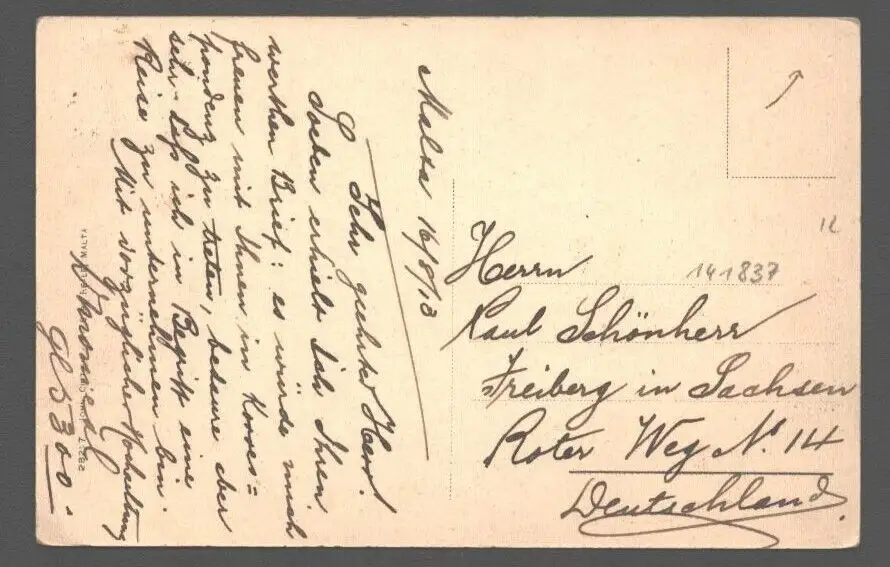 Malta 16/8/13
Sehr geehrter Herr!
Soeben erhielt ich Ihren
werthen Brief: es würde mich
freuen mit Ihnen in Korres=
pondenz zu treten, bedaure aber
sehr daß ich in Begriff eine
Reise zu unternehmen bin.
Mit vorzüglicher Hochachtung
GL 5300.
MALTA
Herrn
Paul Schönherr
Freiberg in Sachsen
Roter Weg No. 14
Deutschland.
141837
12